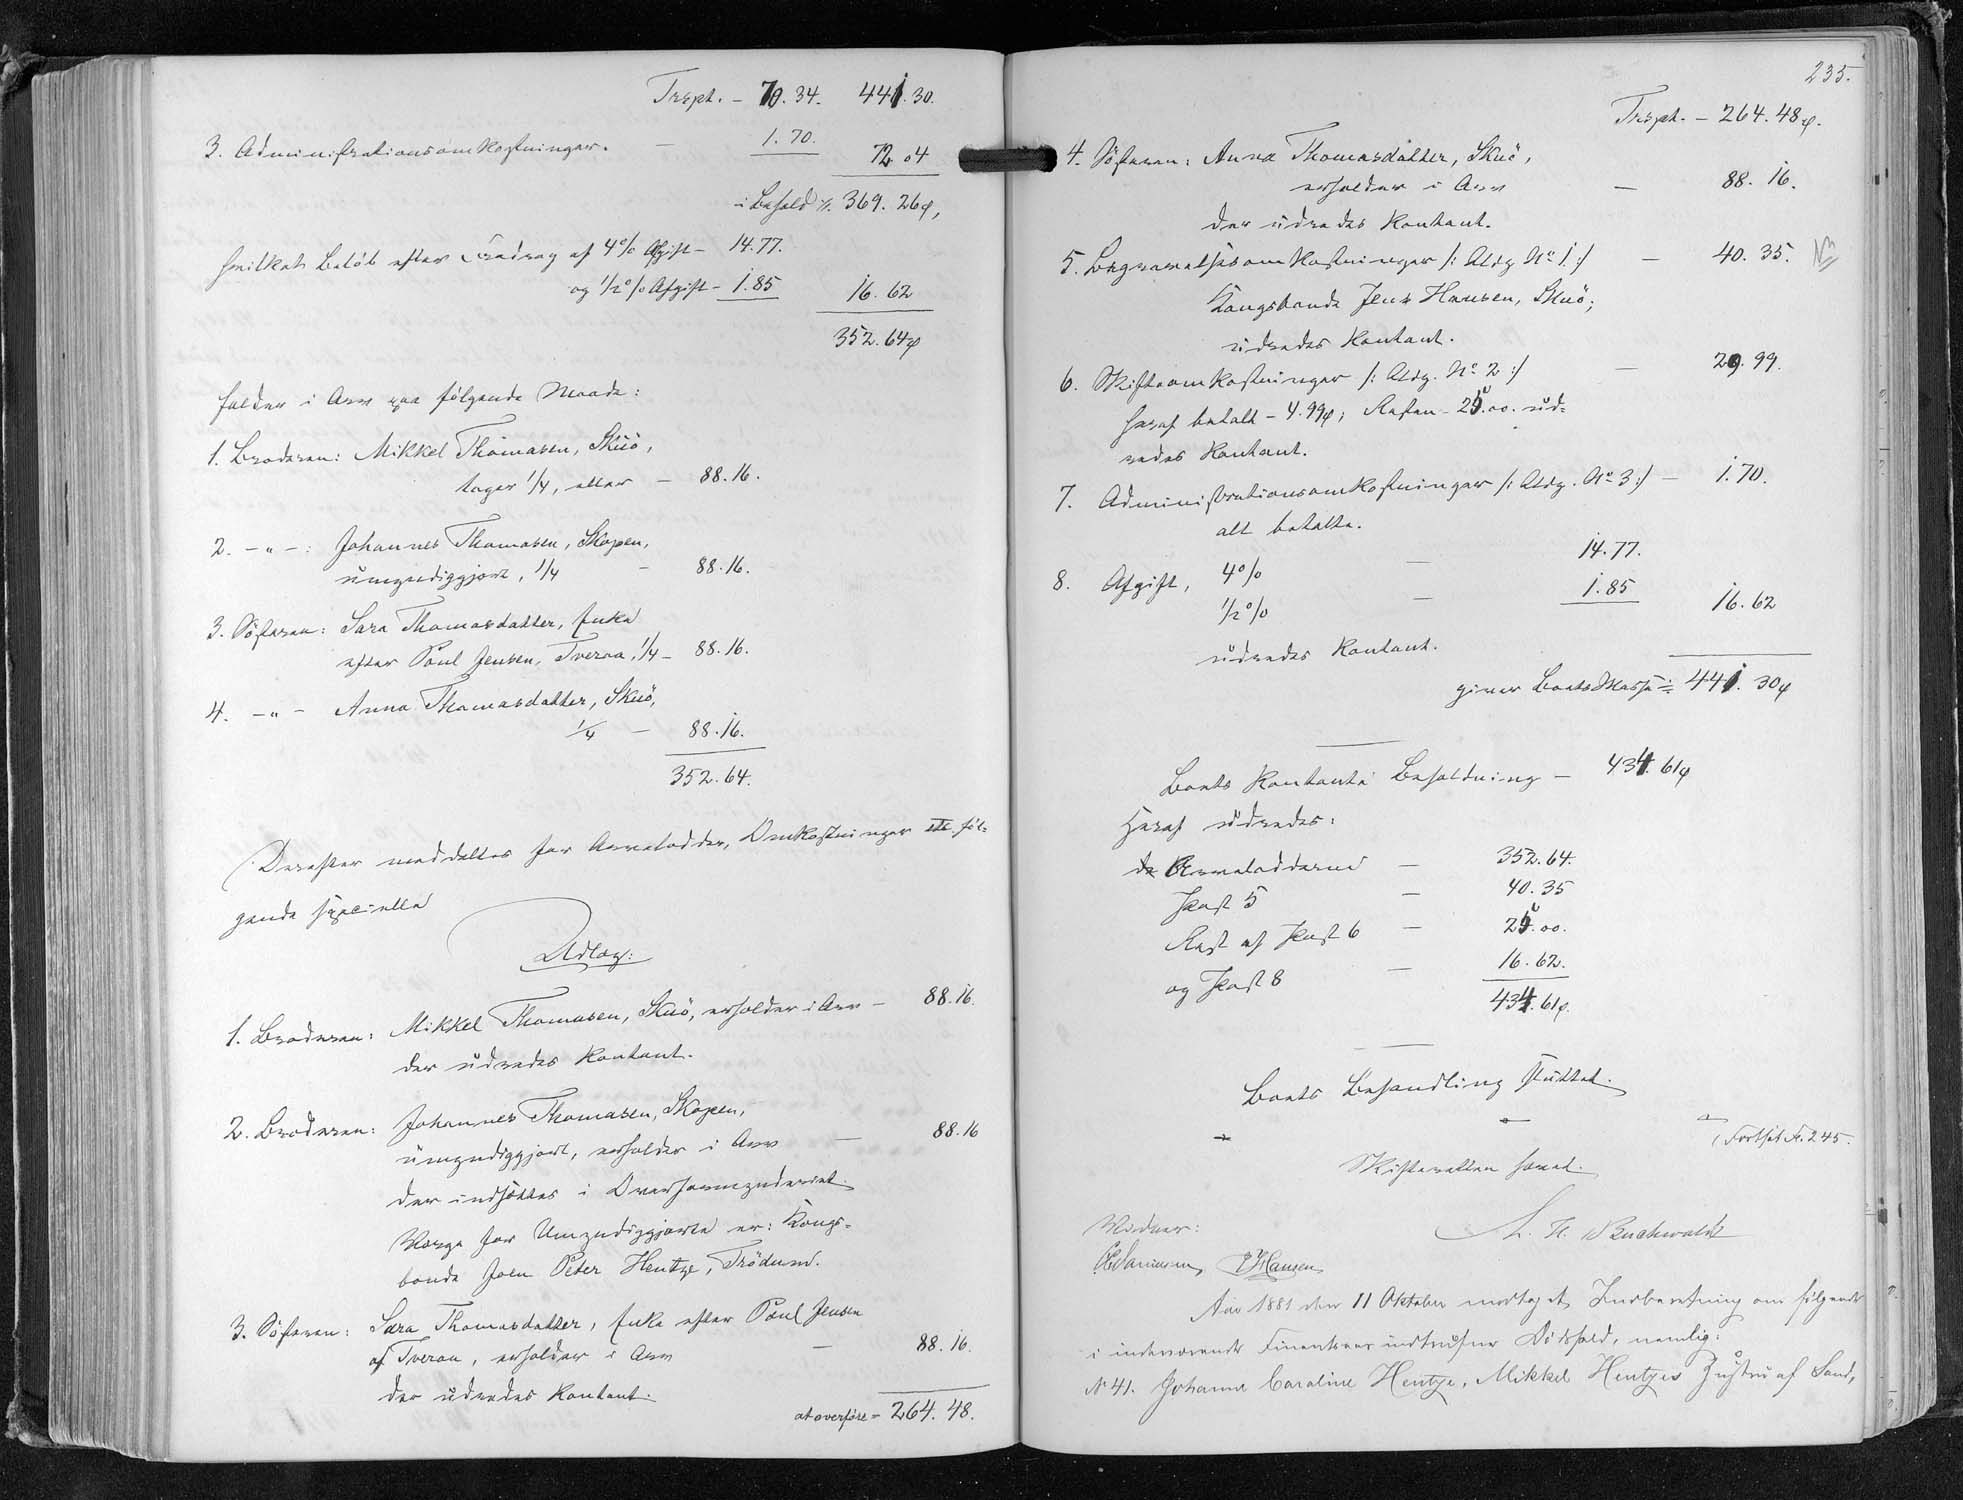 Trspt. – 70. 34. 441. 30.
3. Administrationsomkostninger. – 1. 70. 72 04
i Behold ./. 369. 26ø,
hvilket Beløb efter Fradrag af 4% Afgift – 14. 77.
og 1/2% Afgift – 1. 85 16. 62
352. 64ø
falder i Arv paa følgende Maade:
1. Broderen: Mikkel Thomasen, Skuö,
tager 1/4, eller – 88. 16.
2. – " – : Johannes Thomasen, Skopen,
umyndiggjort, 1/4 – 88. 16.
3. Søsteren: Sara Thomasdatter, Enke
efter Poul Jensen, Tveraa, 1/4 – 88. 16.
4. – " – Anna Thomasdatter, Skuö,
1/4 – 88. 16.
352. 64.
Derefter meddeltes for Arvelodder, Omkostninger etc. føl=
gende specielle
Udlæg:
1. Broderen: Mikkel Thomasen, Skuö, erholder i Arv – 88. 16.
der udredes kontant.
2. Broderen: Johannes Thomasen, Skopen,
umyndiggjort, erholder i Arv – 88. 16
der indsættes i Overformynderiet.
Værge for Umyndiggjorte er: Kongs=
bonde Joen Peter Hentze, Trödum.
3. Søsteren: Sara Thomasdatter, Enke efter Poul Jensen
af Tveraa, erholder i Arv – 88. 16.
der udredes kontant.
at overføre = 264. 48.
235.
Trspt. – 264. 48ø.
4. Søsteren: Anna Thomasdatter, Skuö,
erholder i Arv – 88. 16.
der udredes kontant.
5. Begravelsesomkostninger /: Udg No 1 :/ – 40. 35.
Kongsbonde Jens Hansen, Skuö;
udredes kontant.
6. Skifteomkostninger /: Udg. No 2 :/ – 29. 99.
heraf betalt – 4. 99ø; Resten – 25. 00. ud=
redes kontant.
7. Administrationsomkostninger /: Udg. No 3 :/ – 1. 70.
alt betalte.
8. Afgift, 4% – 14. 77.
1/2% – 1. 85 16. 62
udredes kontant.
giver Boets Masse = 441. 30ø
Boets kontante Beholdning – 434. 61ø
Heraf udredes:
Arveladderne – 352. 64.
Post 5 – 40. 35
Rest af Post 6 – 25. 00.
og Post 8 – 16. 62.
434. 61ø.
Boets Behandling sluttet.
(Fortsæt Fo. 245.
Skifteretten hævet.
Vidner:
Buchwaldt
Hansen
Aar 1881 den 11 Oktober modtaget Indberetning om følgende
i indeværende Finantsaar indtrufne Dødsfald, nemlig:
No 41. Johanne Caroline Hentze, Mikkel Hentzes Hustru af Sand,